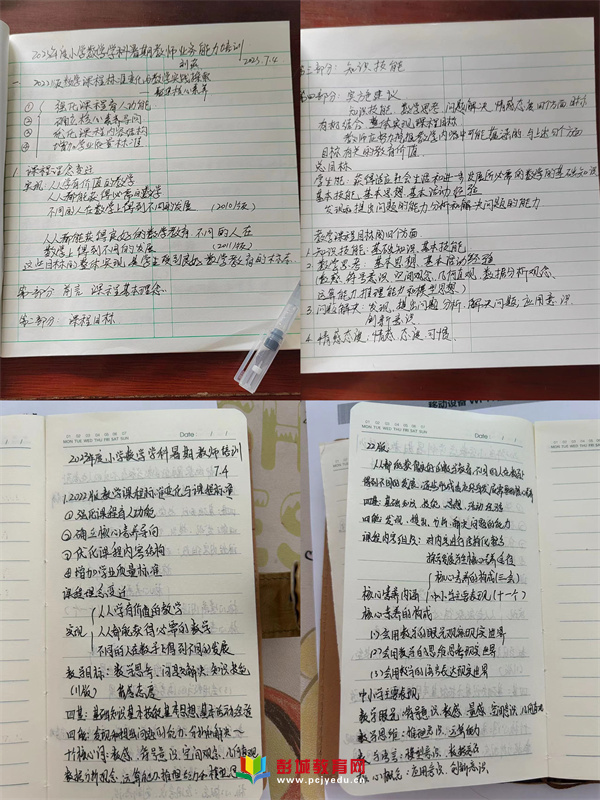 2023年度小学数学学科暑期教师业务能力培训
2023.7.4
一 2022版数学课程标准变化与教学实践探索
——核心素养
① 强化课程育人功能
② 确立核心素养导向
③ 优化课程内容结构
④ 增加学业质量标准
1. 课程理念变迁
实现 人人学有价值的数学
人人都能获得必需的数学
不同的人在数学上得到不同的发展 (2001版)
人人都能获得良好的数学教育 不同的人在
数学上得到不同的发展 (2011版)
第一部分 前言 课程基本理念
第二部分:课程目标
第三部分:知识技能
第四部分:实施建议
知识技能、数学思考、问题解决、情感态度四个方面目标
有机结合,整体实现课程目标
目标有关的教育价值。
总目标
学生能:获得适应社会生活和进一步发展所必需的数学的基础知识
基本技能、基本思想、基本活动经验
发现和提出问题的能力、分析和解决问题的能力
数学课程目标四个方面
1. 知识技能:基础知识、基本技能
2. 数学思考:基本思想、基本活动经验
(数感、符号意识、空间观念、几何直观、数据分析观念、
运算能力、推理能力和模型思想)
3. 问题解决:发现、提出问题、分析、解决问题、应用意识
创新意识
4. 情感态度:情感、态度、习惯
MON TUE WED THU FRI SAT SUN
Date
2023年度小学数学学科暑期教师培训
7.4
1.2022版数学课程标准变化与课程标准
①强化课程育人功能
②确立核心素养导向
③优化课程内容结构
④增加学业质量标准
课程理念变迁
实现
人人学有价值的数学
人人都能获得必需的数学
不同的人在数学上得到不同的发展
数学目标:数学思考、问题解决、知识技能
(11版) 情感态度
四基:基础知识基本技能基本思想基本活动经验
四能:发现和提出问题的能力、分析和解决
十个核心词:数感、符号意识、空间观念、几何直观
数据分析观念、运算能力、推理能力、模型思想
移动设备
MON TUE WED THU FRI SAT SUN
Date
22版
人人都能获得良好的数学教育,不同的人在数学上
得到不同的发展,
四基:基础知识、技能、思想、活动经验
四能:发现、提出、分析、解决问题的能力
课程内容组织:对内容进行结构化整合
探索发展学生核心素养路径
核心素养内涵
核心素养的构成(三会)
中小学主要表现(十一个)
核心素养的构成
(1)会用数学的眼光观察现实世界
(2)会用数学的思维思考现实世界
(3)会用数学的语言表达现实世界
中小学主要表现
数学眼光:符号意识、数感、量感、空间观念、几何直观
数学思维:推理意识、运算能力
数学语言:模型意识、数据意识
核心概念:应用意识、创新意识
彭城教育网
www.pcjyedu.cn